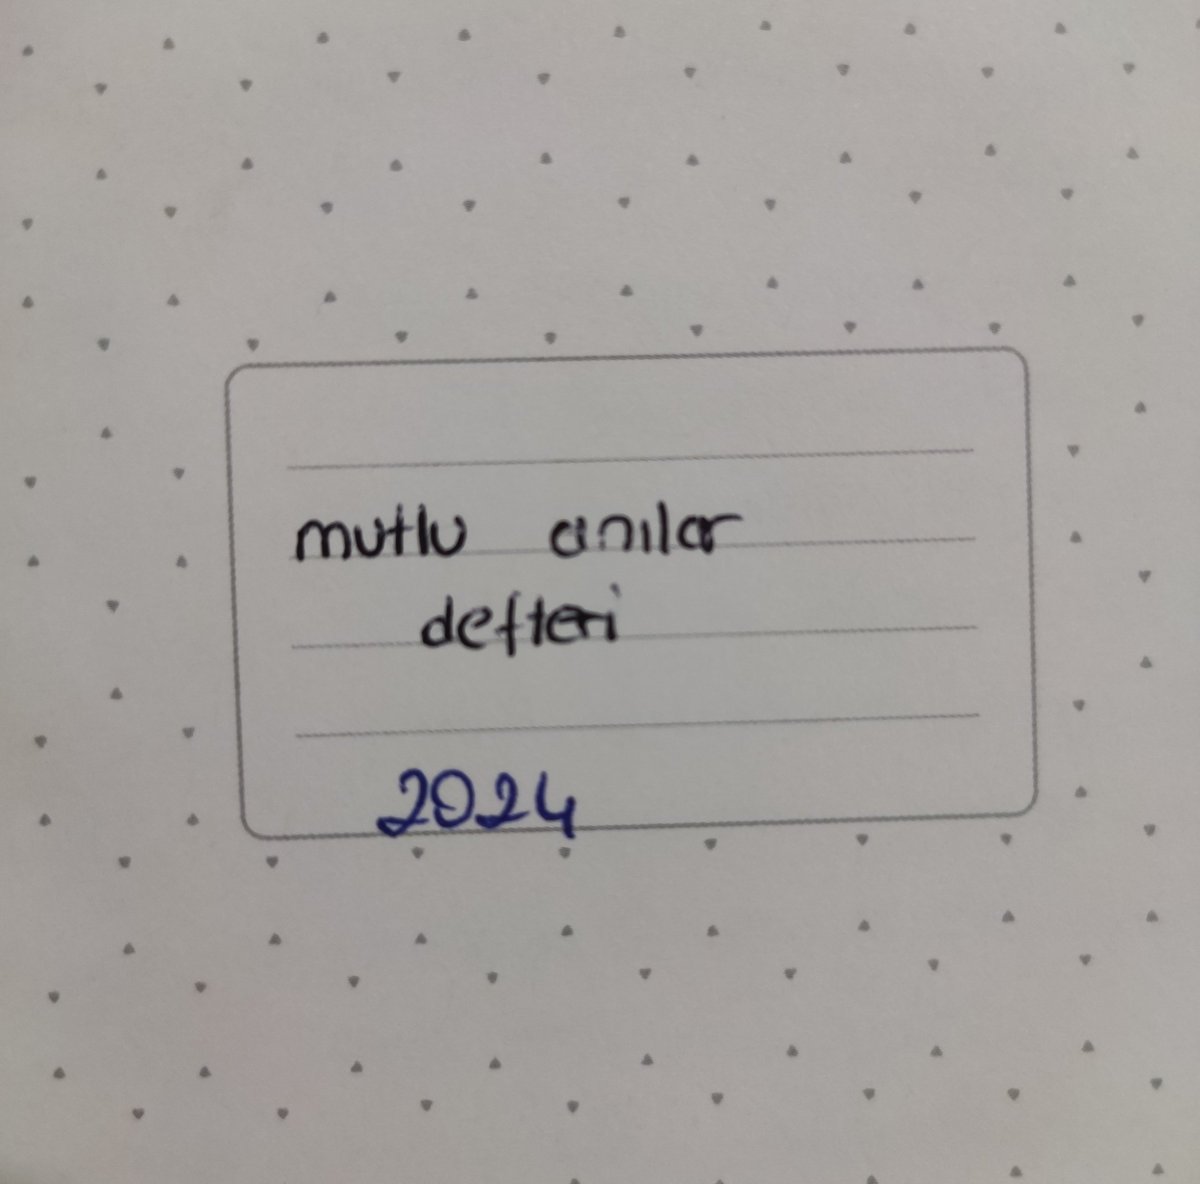 mutlu anılar
defteri
2024